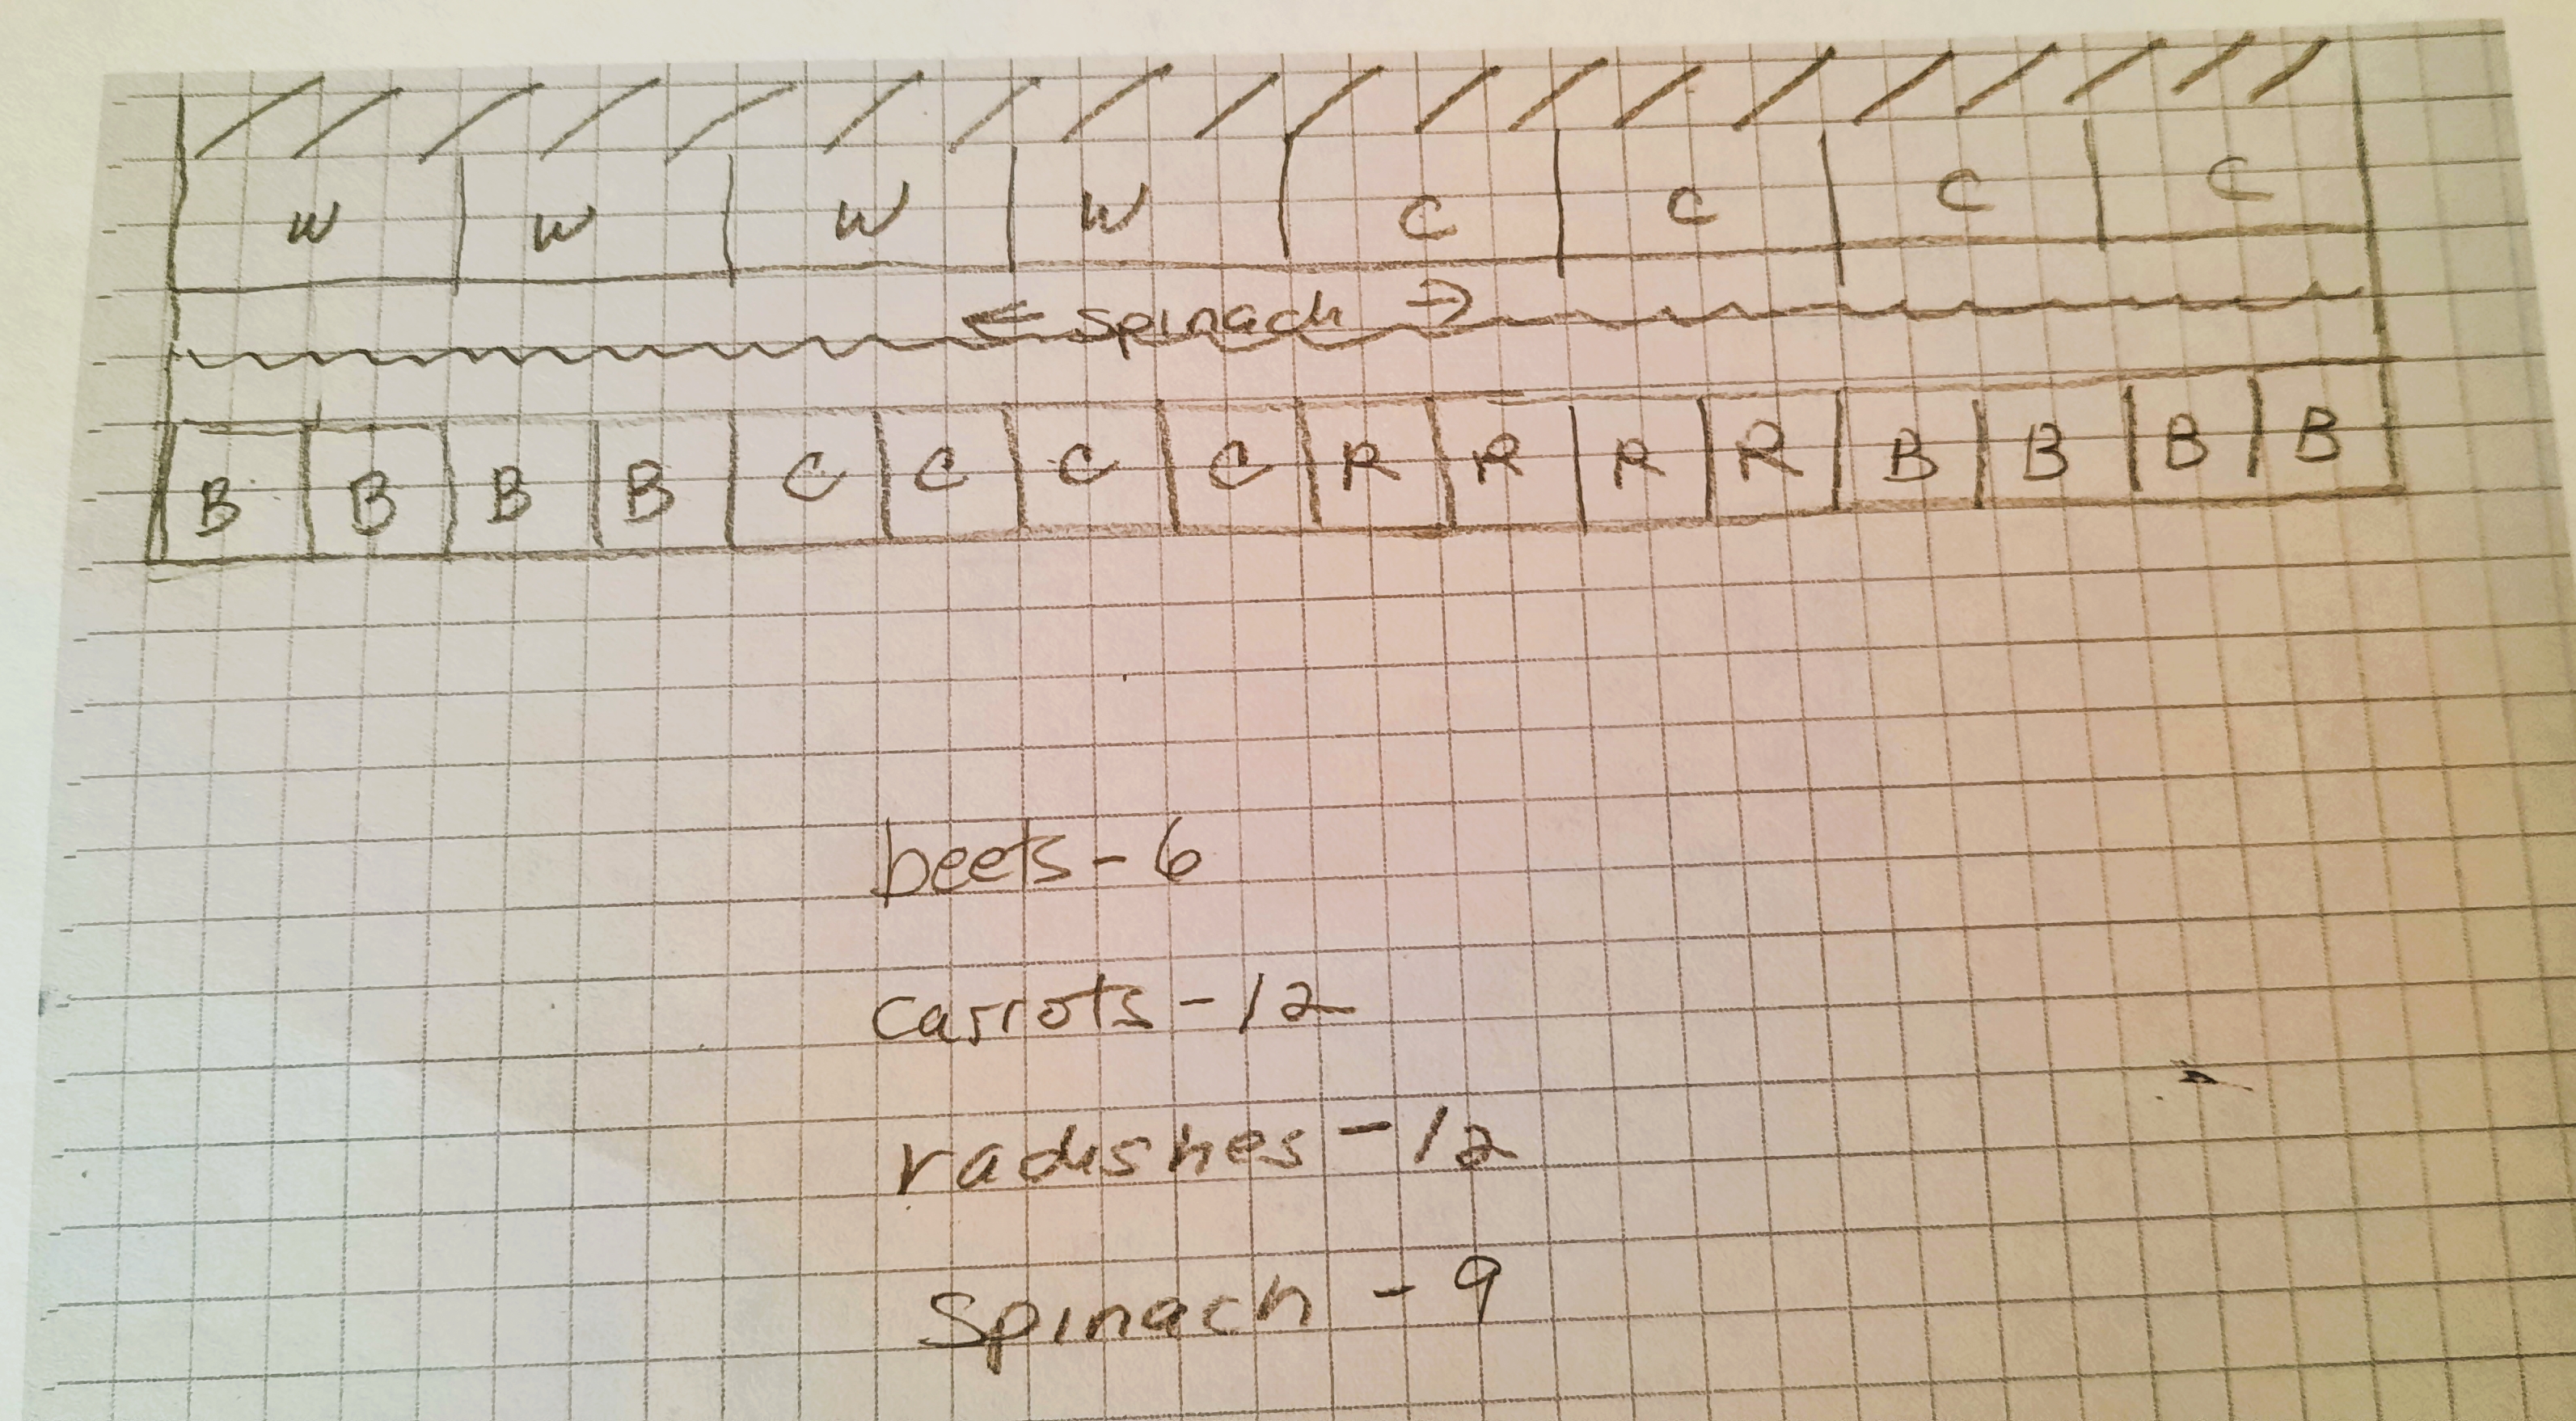 W W W W C C C C
← Spinach →
B B B B C C C C R R R R B B B B
beets - 6
carrots - 12
radishes - 12
Spinach - 9